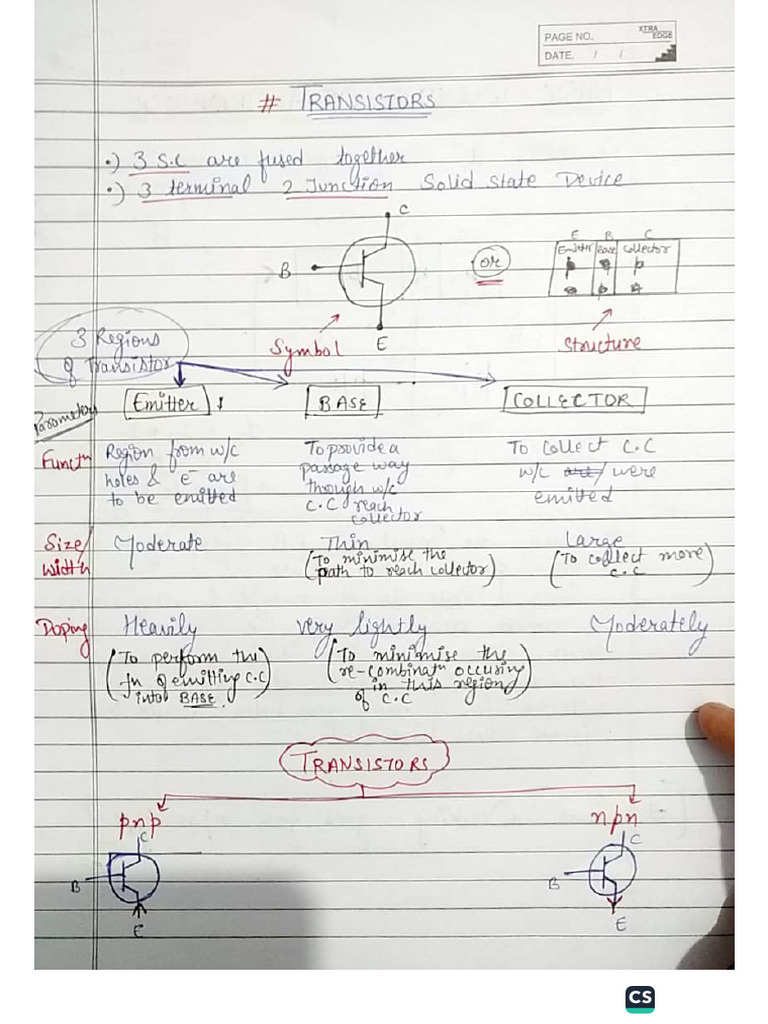 PAGE NO.
XTRA EDGE
DATE. / /
# TRANSISTORS
•) 3 S.C are fused together
•) 3 terminal 2 Junction Solid State Device
C
B
E
or
E B C
Emitter Base Collector
Symbol
Structure
3 Regions of Transistor
Parameters
Emitter BASE COLLECTOR
Functn
Region from w/c
holes & e⁻ are
to be emitted
To provide a
passage way
through w/c
C.C reach
collector
To collect C.C
w/c are/ were
emitted
Size/
Width
Moderate
Thin
(To minimise the
path to reach collector)
Large
(To collect more
c.c)
Doping
Heavily
(To perform the
fn of emitting C.C
into BASE.)
very lightly
(To minimise the
re-combinatn occusing
in this region
of C.C)
Moderately
TRANSISTORS
pnp
npn
C
B
E
C
B
E
CS